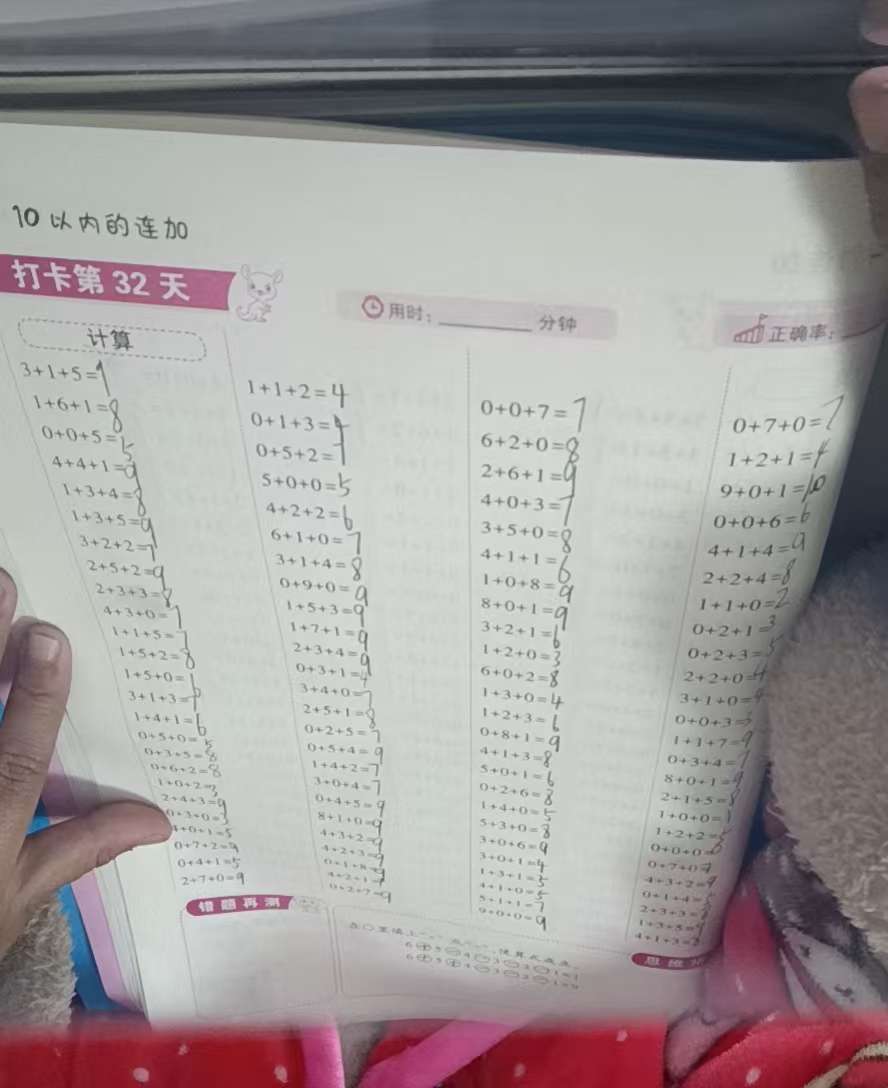 10以内的连加
打卡第 32 天
用时： 分钟
正确率：
计算
3+1+5=9
1+6+1=8
0+0+5=5
4+4+1=9
1+3+4=8
1+3+5=9
3+2+2=7
2+5+2=9
2+3+3=8
4+3+0=7
1+1+5=7
1+5+2=8
1+5+0=
3+1+3=7
1+4+1=6
0+5+0=5
0+3+5=8
0+6+2=8
1+0+2=3
2+4+3=9
0+3+0=3
4+0+1=5
0+7+2=9
0+4+1=5
2+7+0=9
1+1+2=4
0+1+3=4
0+5+2=7
5+0+0=5
4+2+2=6
6+1+0=7
3+1+4=8
0+9+0=9
1+5+3=9
1+7+1=9
2+3+4=9
0+3+1=4
3+4+0=7
2+5+1=8
0+2+5=7
0+5+4=9
1+4+2=7
3+0+4=7
0+4+5=9
8+1+0=9
4+3+2=9
4+2+3=9
0+1+8=9
4+2+1=
0+2+7=9
0+0+7=7
6+2+0=8
2+6+1=9
4+0+3=7
3+5+0=8
4+1+1=6
1+0+8=9
8+0+1=9
3+2+1=6
1+2+0=3
6+0+2=8
1+3+0=4
1+2+3=6
0+8+1=9
4+1+3=8
5+0+1=6
0+2+6=8
1+4+0=5
5+3+0=8
3+0+6=9
3+0+1=4
1+3+1=5
4+1+0=5
5+1+1=7
9+0+0=9
0+7+0=7
1+2+1=4
9+0+1=10
0+0+6=6
4+1+4=9
2+2+4=8
1+1+0=2
0+2+1=3
0+2+3=5
2+2+0=4
3+1+0=4
0+0+3=3
1+1+7=9
0+3+4=7
8+0+1=9
2+1+5=8
1+0+0=1
1+2+2=5
0+0+0=
0+7+0=7
4+3+2=9
0+1+4=5
2+3+3=8
1+3+5=9
4+1+3=8
错题再测
思维